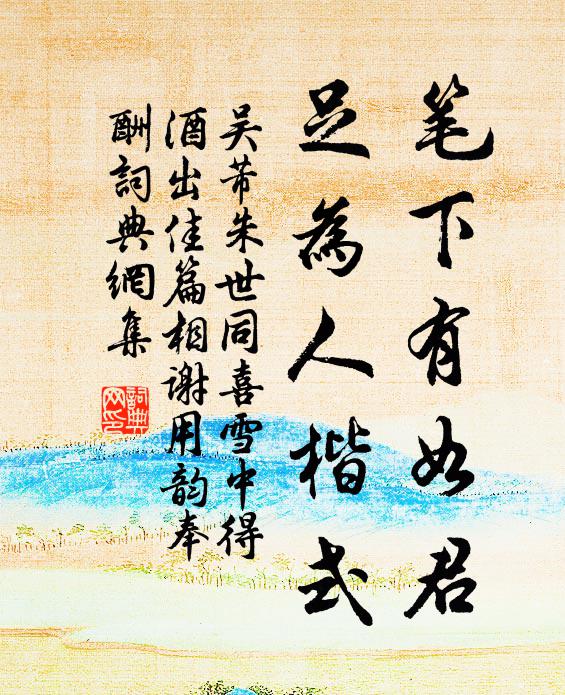 笔下有如君
足為人楷式
吴芾朱世同喜雪中得
酒出佳篇相谢用韵奉
酬詞典網集
詞典
网印